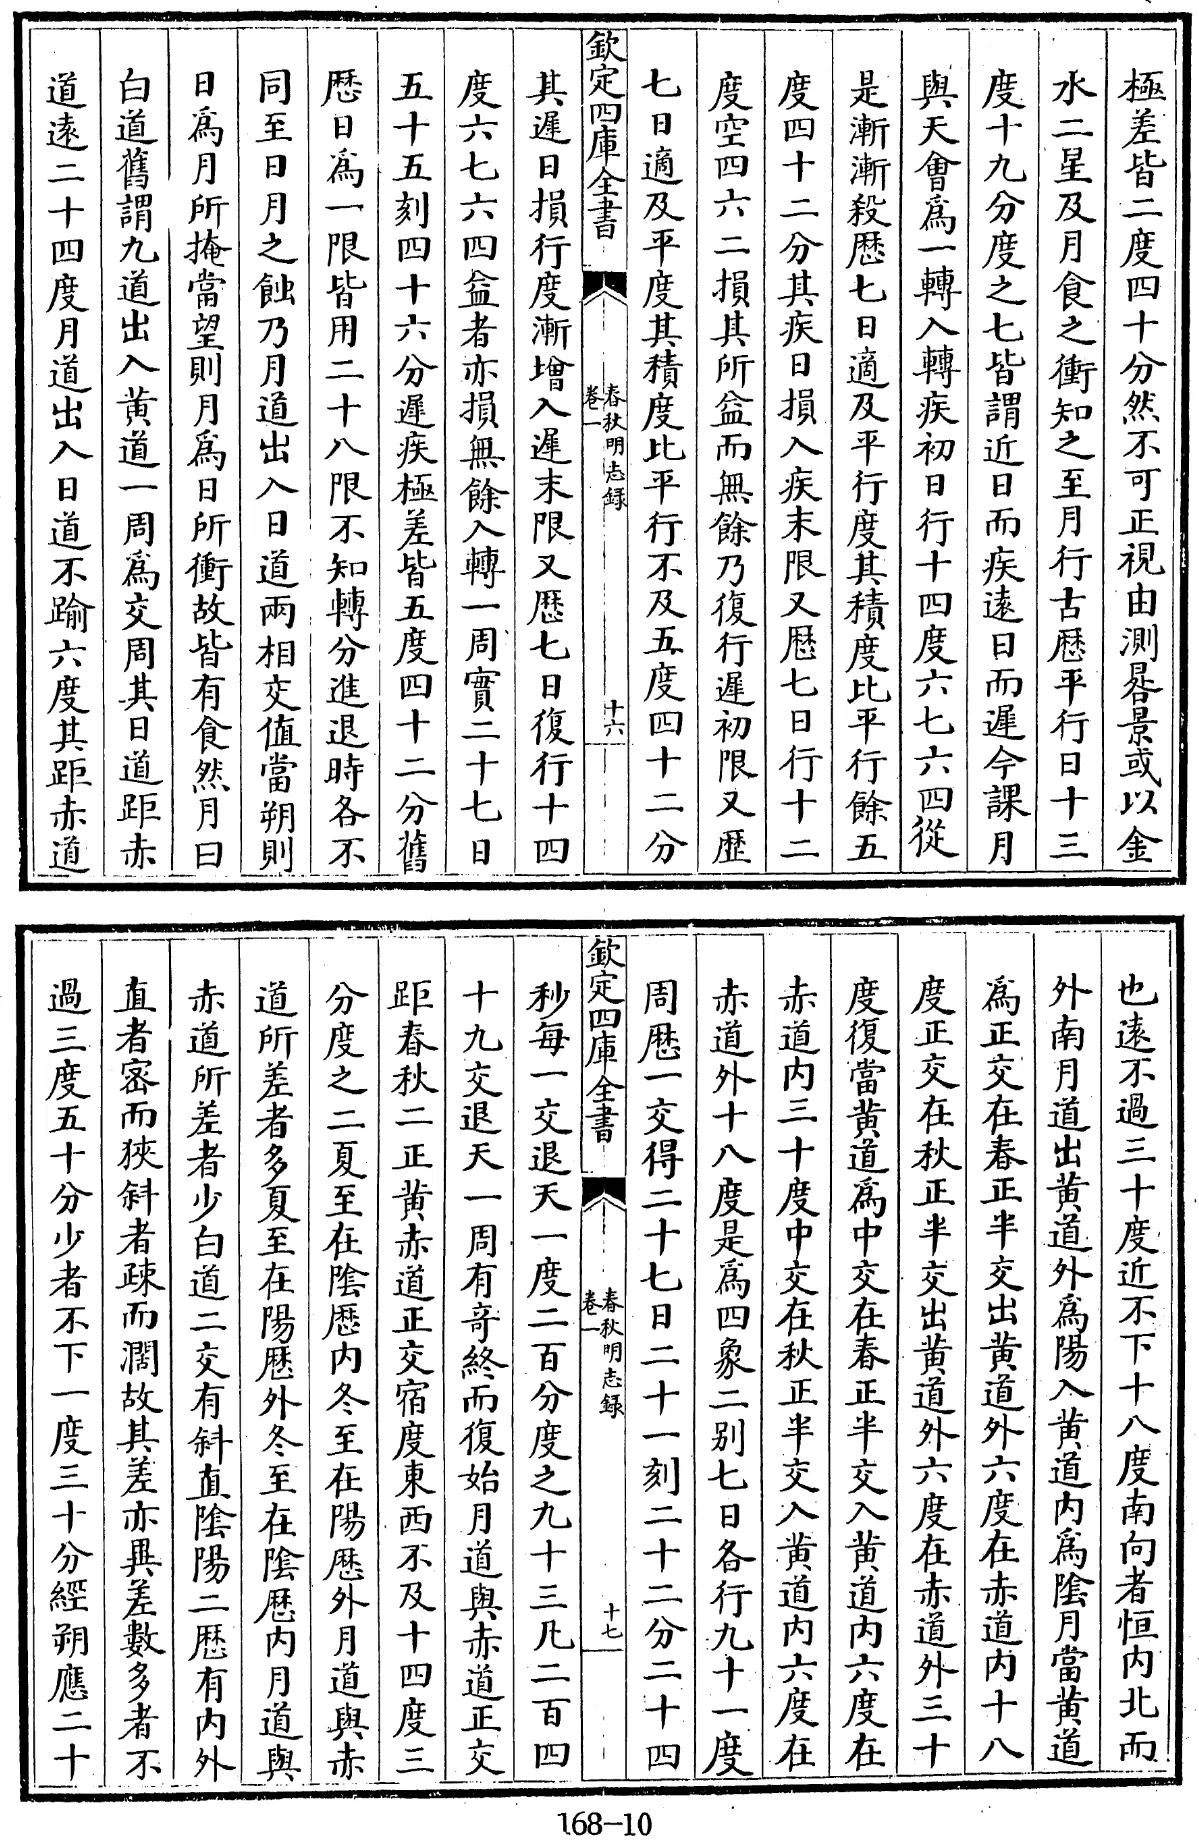 極差皆二度四十分然不可正視由測晷景或以金
水二星及月食之衝知之至月行古厯平行日十三
度十九分度之七皆謂近日而疾遠日而遲今課月
與天會爲一轉入轉疾初日行十四度六七六四從
是漸漸殺厯七日適及平行度其積度比平行餘五
度四十二分其疾日損入疾末限又厯七日行十二
度空四六二損其所益而無餘乃復行遲初限又歴
七日適及平度其積度比平行不及五度四十二分
欽定四庫全書
春秋明志錄
卷一
十六
其遲日損行度漸增入遲末限又歷七日復行十四
度六七六四益者亦損無餘入轉一周實二十七日
五十五刻四十六分遲疾極差皆五度四十二分舊
厯日爲一限皆用二十八限不知轉分進退時各不
同至日月之蝕乃月道出入日道兩相交值當朔則
日爲月所掩當望則月爲日所衝故皆有食然月曰
白道舊謂九道出入黄道一周爲交周其日道距赤
道遠二十四度月道出入日道不踰六度其距赤道
也遠不過三十度近不下十八度南向者恒内北而
外南月道出黄道外爲陽入黄道内爲陰月當黄道
爲正交在春正半交出黄道外六度在赤道内十八
度正交在秋正半交出黄道外六度在赤道外三十
度復當黄道爲中交在春正半交入黄道内六度在
赤道内三十度中交在秋正半交入黄道内六度在
赤道外十八度是爲四象二别七日各行九十一度
周厯一交得二十七日二十一刻二十二分二十四
欽定四庫全書
春秋明志錄
卷一
十七
秒每一交退天一度二百分度之九十三凡二百四
十九交退天一周有奇終而復始月道與赤道正交
距春秋二正黄赤道正交宿度東西不及十四度三
分度之二夏至在陰厯内冬至在陽厯外月道與赤
道所差者多夏至在陽厯外冬至在陰厯内月道與
赤道所差者少白道二交有斜直陰陽二厯有内外
直者密而狹斜者疎而濶故其差亦異差數多者不
過三度五十分少者不下一度三十分經朔應二十
168-10